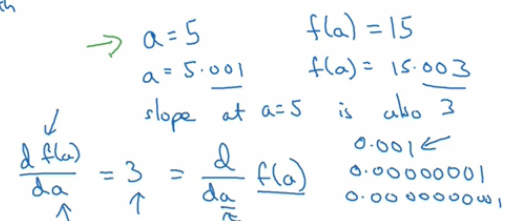 → a = 5 f(a) = 15
a = 5.001 f(a) = 15.003
slope at a=5 is also 3
d f(a)/da = 3 = d/da f(a)
0.001 ←
0.00000001
0.0000000001